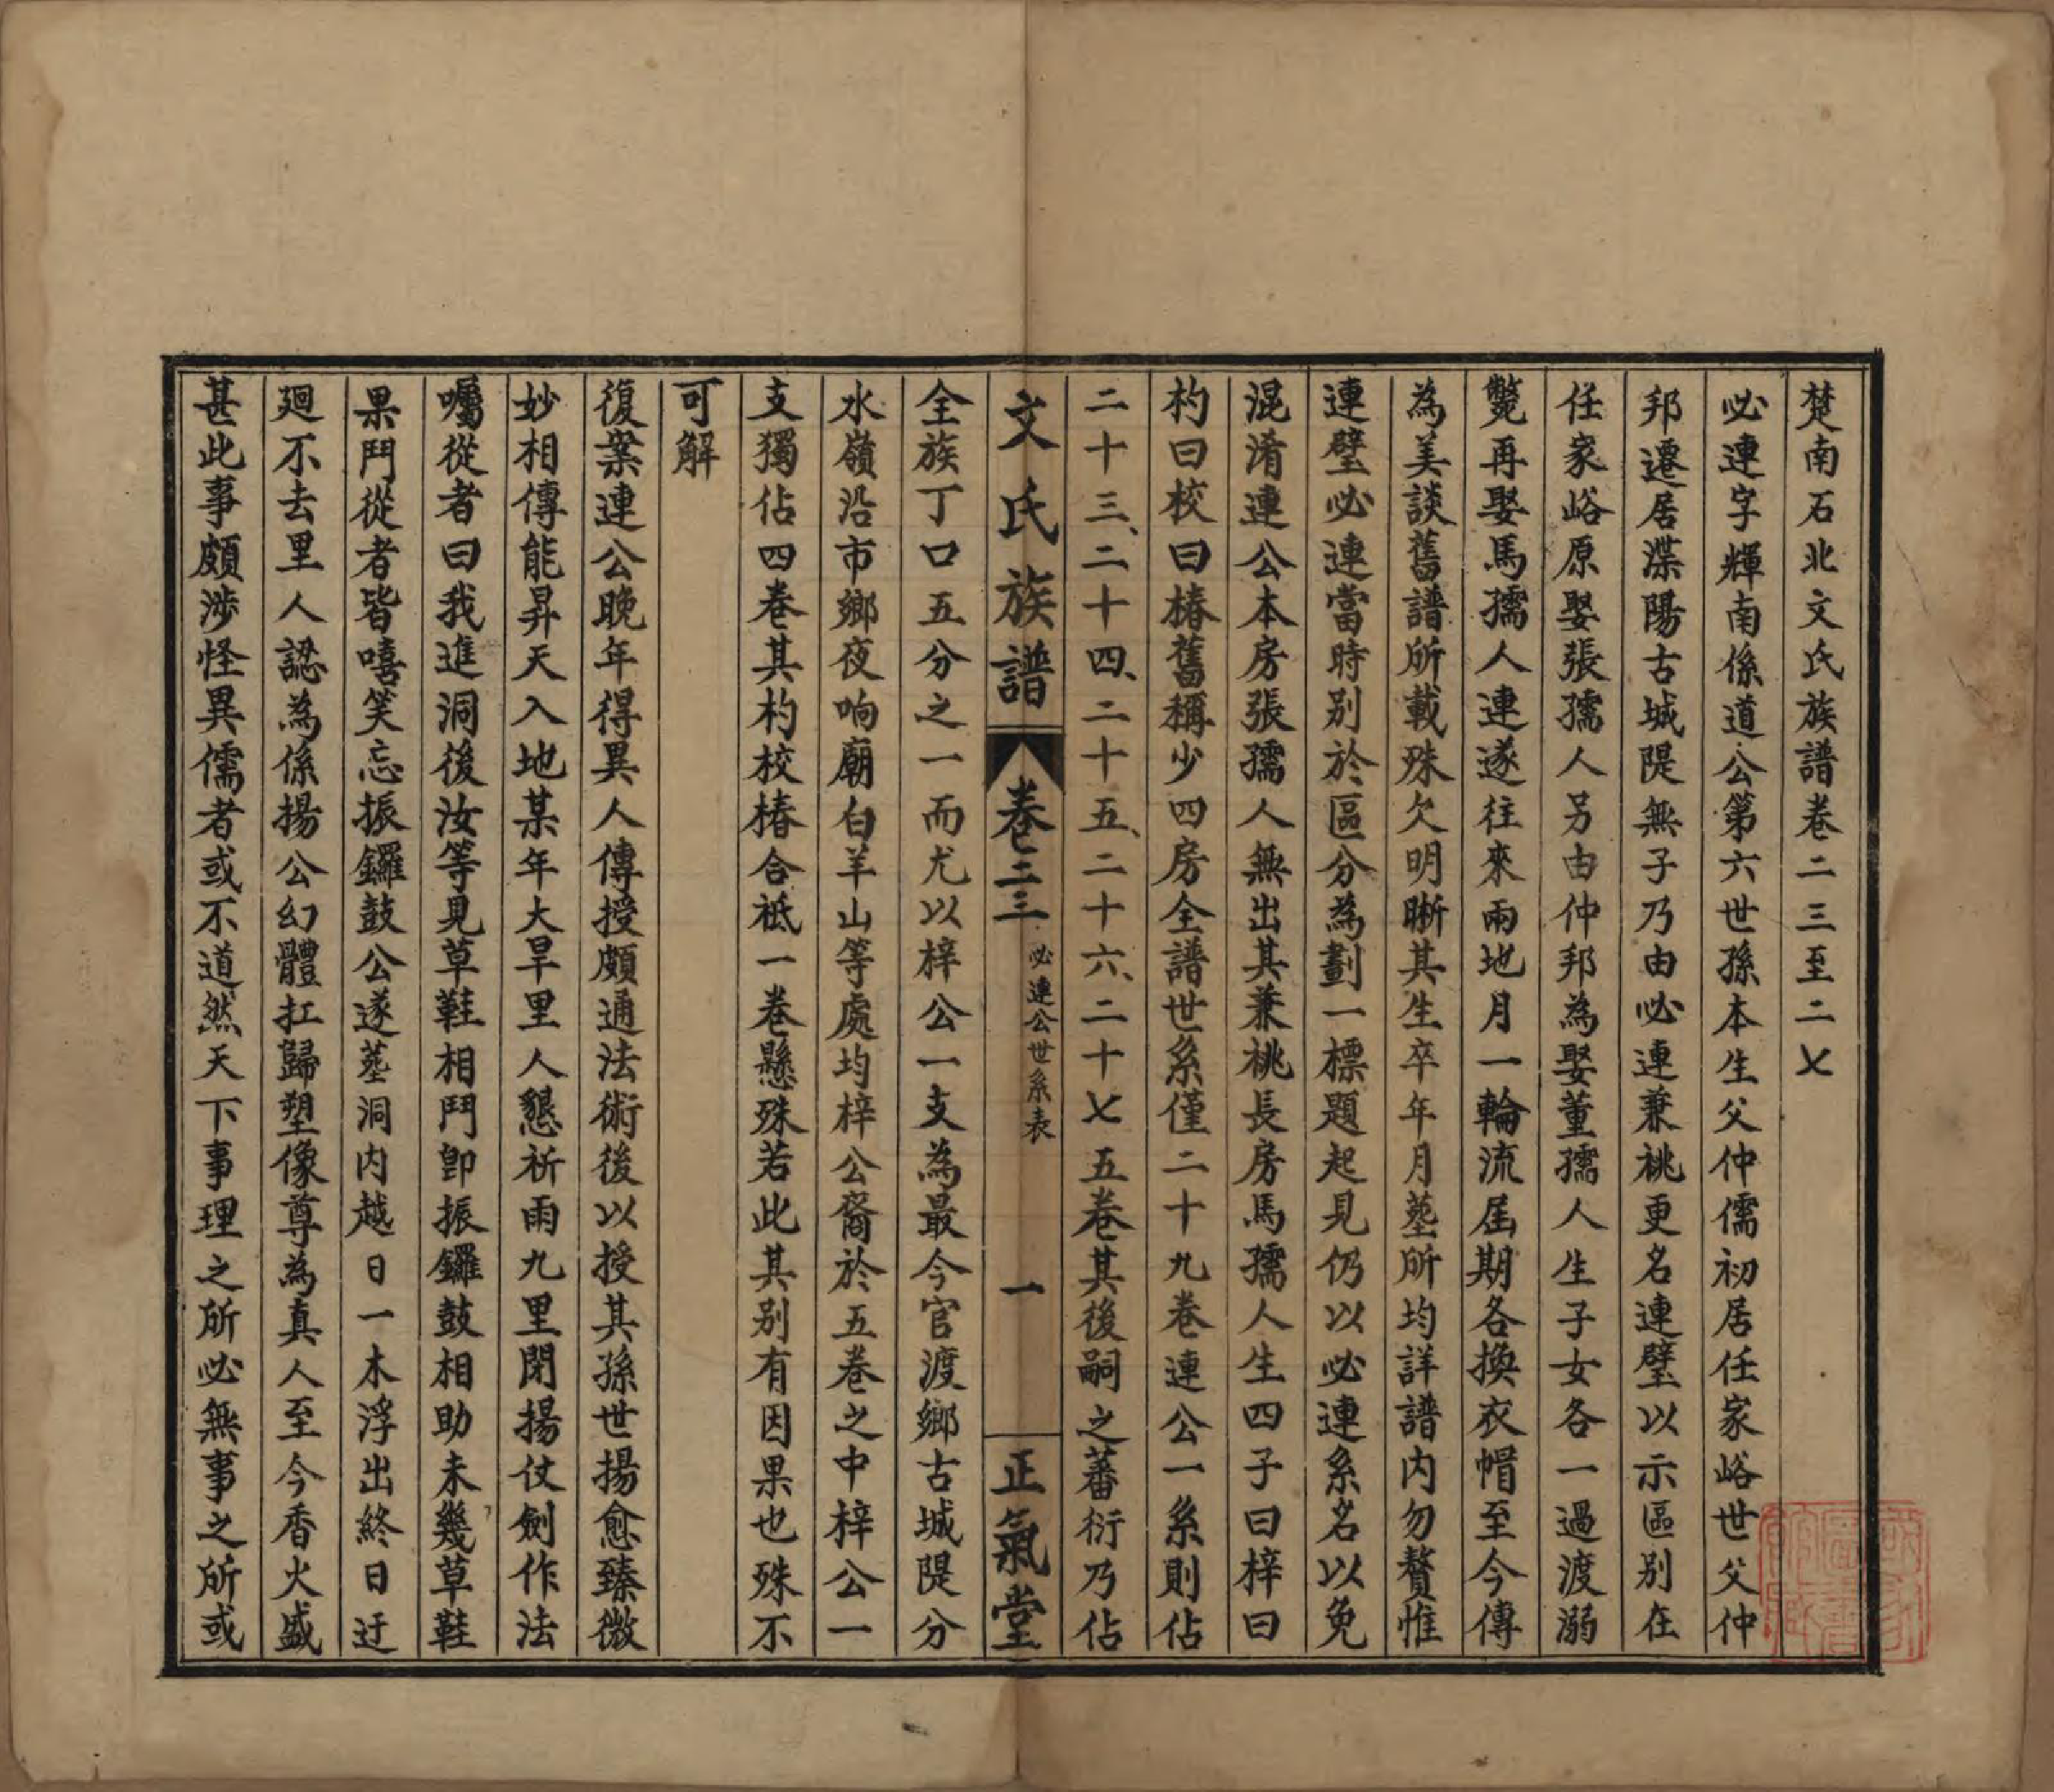 楚南石北文氏族譜卷二三至二七
必連字輝南係道公第六世孫本生父仲儒初居任家峪世父仲
邦遷居渫陽古城隄無子乃由必連兼祧更名連璧以示區别在
任家峪原娶張孺人另由仲邦為娶董孺人生子女各一過渡溺
斃再娶馬孺人連遂往來兩地月一輪流屆期各換衣帽至今傳
為美談舊譜所載殊欠明晣其生卒年月塟所均詳譜内勿贅惟
連璧必連當時别於區分為劃一標題起見仍以必連系名以免
混淆連公本房張孺人無出其兼祧長房馬孺人生四子曰梓曰
杓曰校曰椿舊稱少四房全譜世系僅二十九卷連公一系則佔
二十三、二十四、二十五、二十六、二十七五卷其後嗣之蕃衍乃佔
文氏族譜 卷二三 必連公世系表 一 正氣堂
全族丁口五分之一而尤以梓公一支為最今官渡鄉古城隄分
水嶺沿市鄉夜响廟白羊山等處均梓公裔於五卷之中梓公一
支獨佔四卷其杓校椿合衹一卷懸殊若此其别有因果也殊不
可解
復案連公晚年得異人傳授頗通法術後以授其孫世揚愈臻微
妙相傳能昇天入地某年大旱里人懇祈雨九里閉揚仗劍作法
囑從者曰我進洞後汝等見草鞋相鬥卽振鑼鼓相助未幾草鞋
果鬥從者皆嘻笑忘振鑼鼓公遂塟洞内越日一木浮出終日迂
廻不去里人認為係揚公幻體扛歸塑像尊為真人至今香火盛
甚此事頗涉怪異儒者或不道然天下事理之所必無事之所或